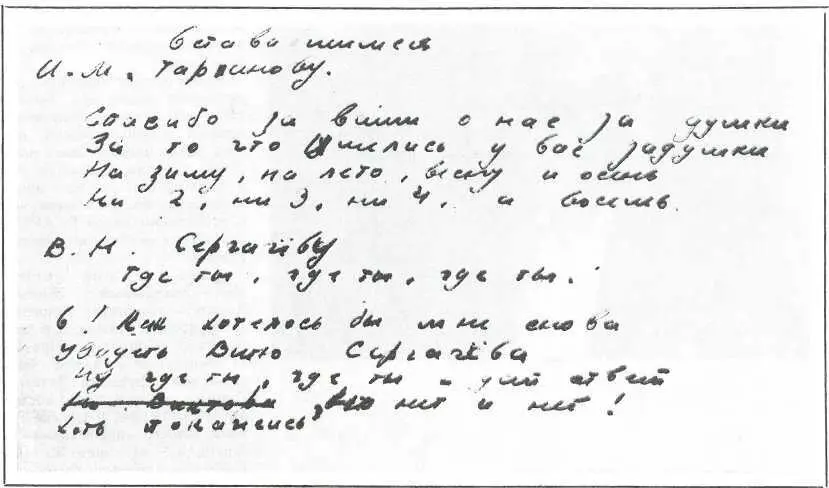 Оставшимся
И. М. Тарханову.
Спасибо за ваши о нас за думки
За то что имелись у вас задумки
На зиму, на лето, весну и осень
Ни 2, ни 3, ни 4, а восемь.
В. Н. Сергачёву
Где ты, где ты, где ты.
О! Как хотелось бы мне снова
Увидеть Витю Сергачёва
Ну где ты, где ты – дай ответ
нет и нет!
Хоть покажись,